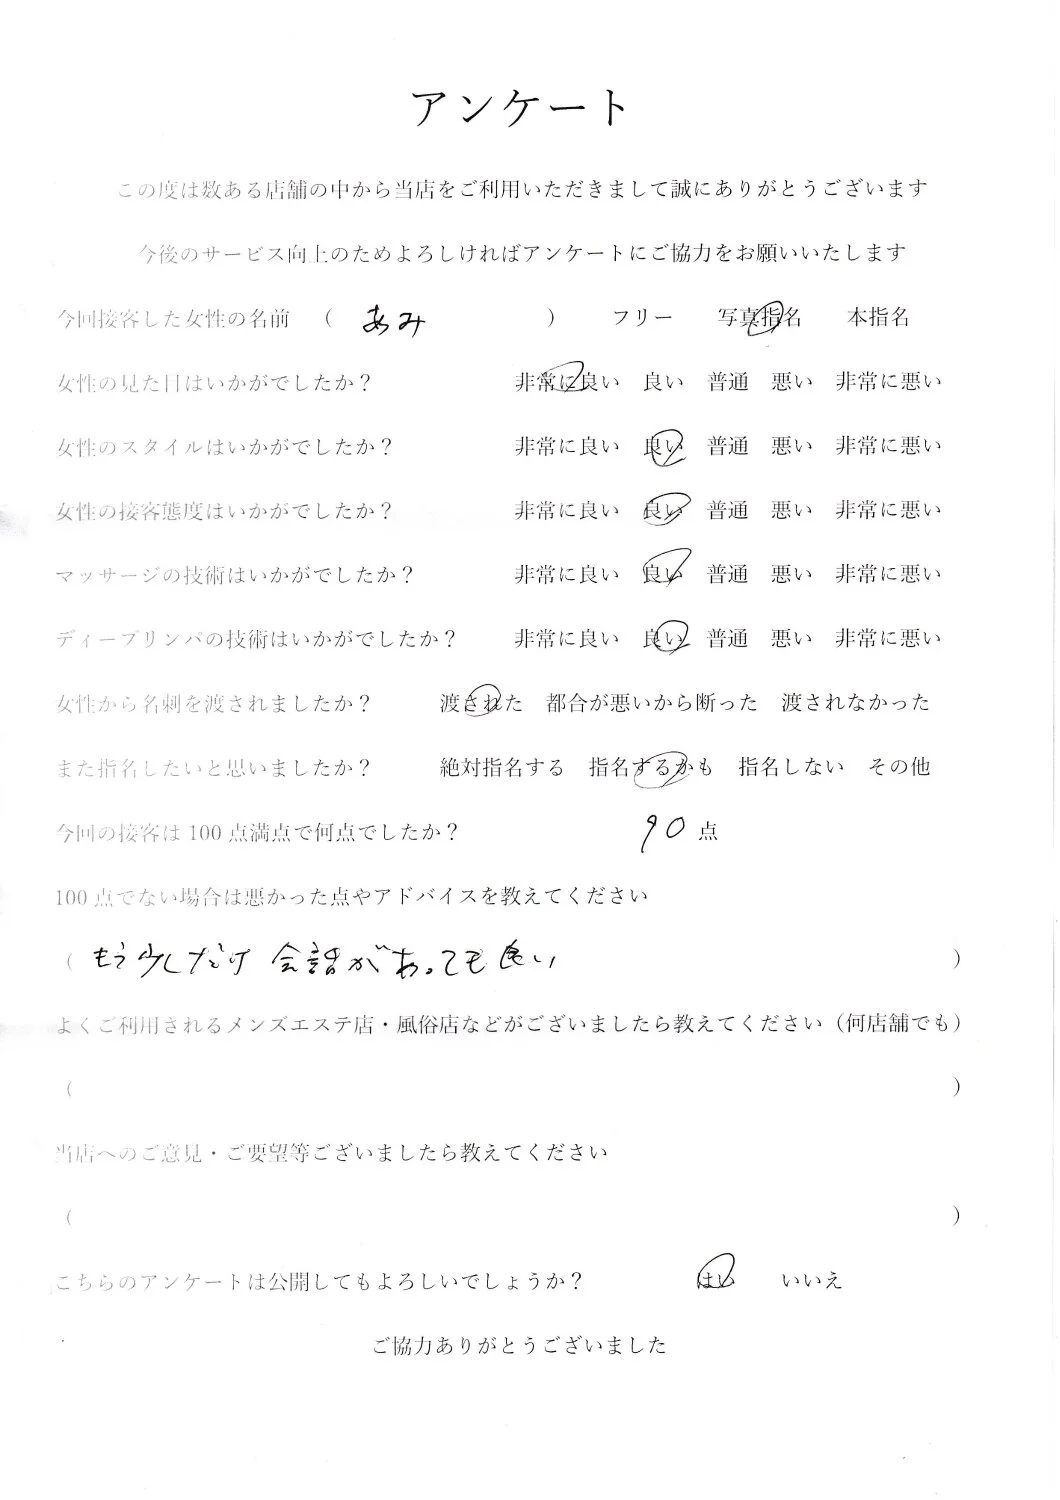 アンケート
この度は数ある店舗の中から当店をご利用いただきまして誠にありがとうございます
今後のサービス向上のためよろしければアンケートにご協力をお願いいたします
今回接客した女性の名前 （ あみ ） フリー 写真指名 本指名
女性の見た目はいかがでしたか？ 非常に良い 良い 普通 悪い 非常に悪い
女性のスタイルはいかがでしたか？ 非常に良い 良い 普通 悪い 非常に悪い
女性の接客態度はいかがでしたか？ 非常に良い 良い 普通 悪い 非常に悪い
マッサージの技術はいかがでしたか？ 非常に良い 良い 普通 悪い 非常に悪い
ディープリンパの技術はいかがでしたか？ 非常に良い 良い 普通 悪い 非常に悪い
女性から名刺を渡されましたか？ 渡された 都合が悪いから断った 渡されなかった
また指名したいと思いましたか？ 絶対指名する 指名するかも 指名しない その他
今回の接客は 100 点満点で何点でしたか？ 90 点
100 点でない場合は悪かった点やアドバイスを教えてください
（ もう少しだけ 会話があっても良い ）
よくご利用されるメンズエステ店・風俗店などがございましたら教えてください（何店舗でも）
（ ）
当店へのご意見・ご要望等ございましたら教えてください
（ ）
こちらのアンケートは公開してもよろしいでしょうか？ はい いいえ
ご協力ありがとうございました